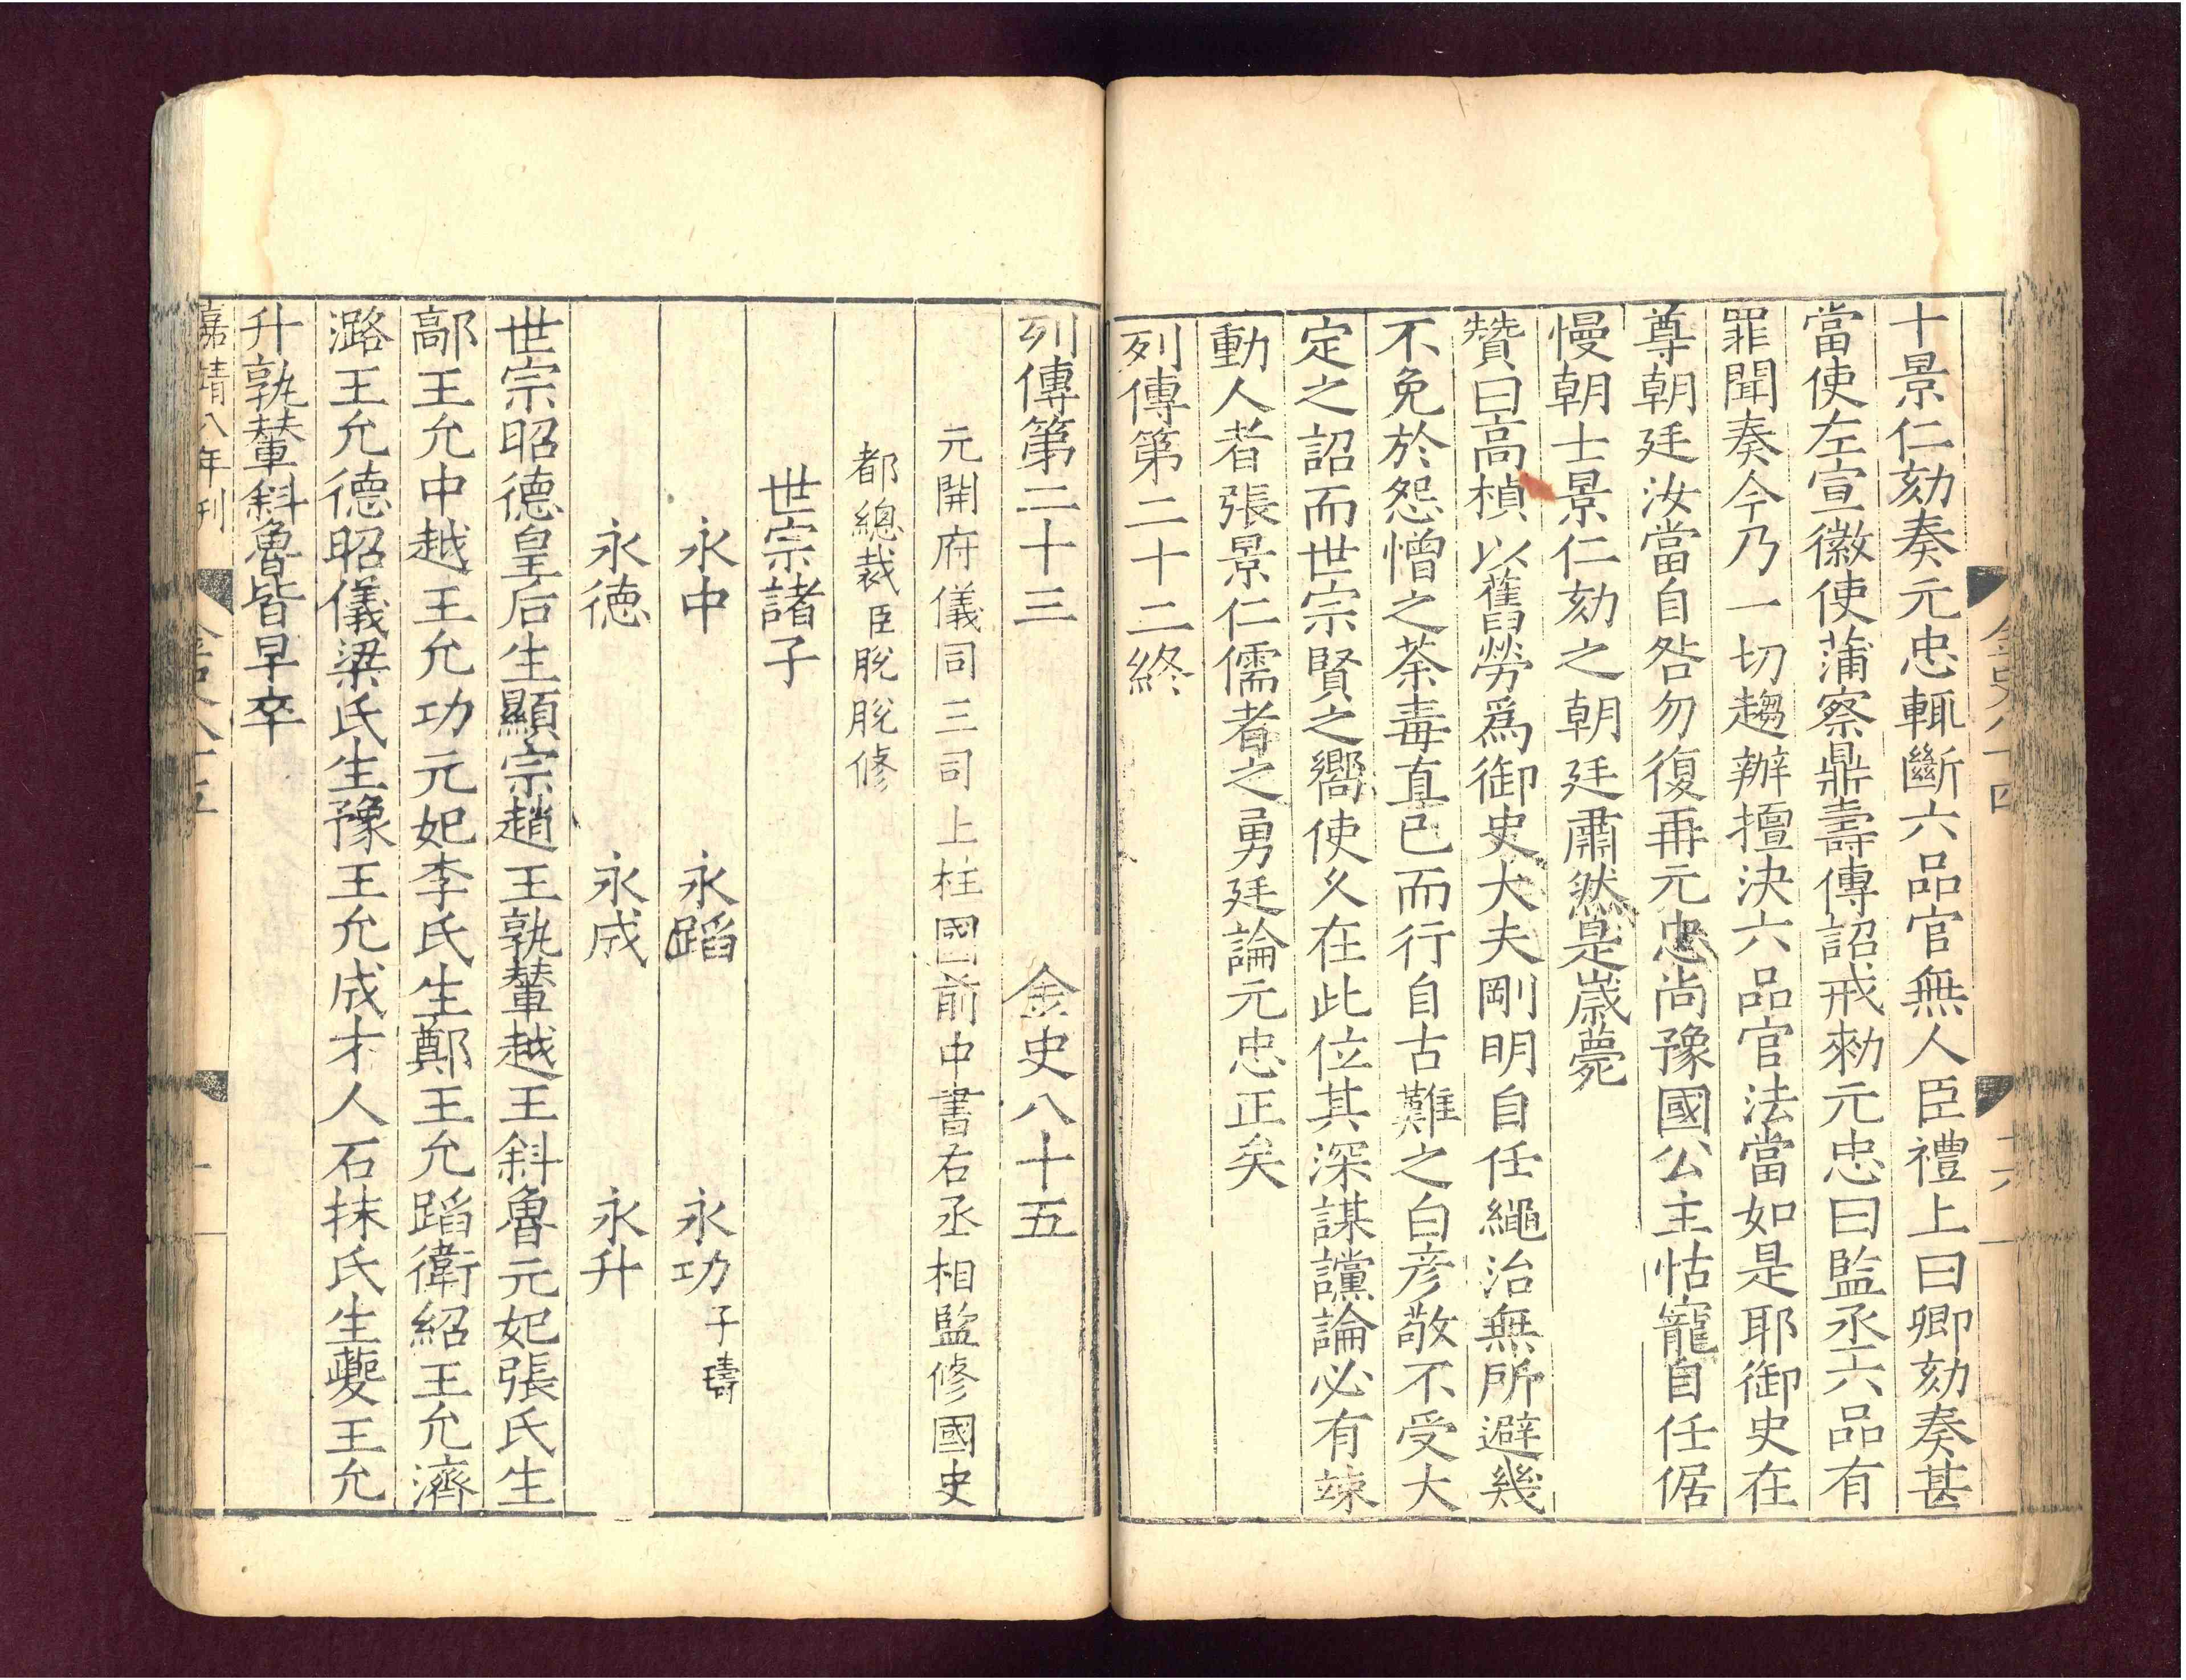 金史八十四
十六
十景仁劾奏元忠輒斷六品官無人臣禮上曰卿劾奏甚
當使左宣徽使蒲察鼎壽傳詔戒勑元忠曰監丞六品有
罪聞奏今乃一切趨辦擅決六品官法當如是耶御史在
尊朝廷汝當自咎勿復再元忠尚豫國公主怙寵自任倨
慢朝士景仁劾之朝廷肅然是歲薨
贊曰高楨以舊勞爲御史大夫剛明自任繩治無所避幾
不免於怨憎之荼毒直已而行自古難之白彥敬不受大
定之詔而世宗賢之嚮使久在此位其深謀讜論必有竦
動人者張景仁儒者之勇廷論元忠正矣
列傳第二十二終
列傳第二十三 金史八十五
元開府儀同三司上柱國前中書右丞相監修國史
都總裁臣脫脫修
世宗諸子
永中 永蹈 永功子璹
永德 永成 永升
世宗昭德皇后生顯宗趙王孰輦越王斜魯元妃張氏生
鄗王允中越王允功元妃李氏生鄭王允蹈衛紹王允濟
潞王允德昭儀梁氏生豫王允成才人石抹氏生夔王允
升孰輦斜魯皆早卒
嘉靖八年刊
金史八十五
一